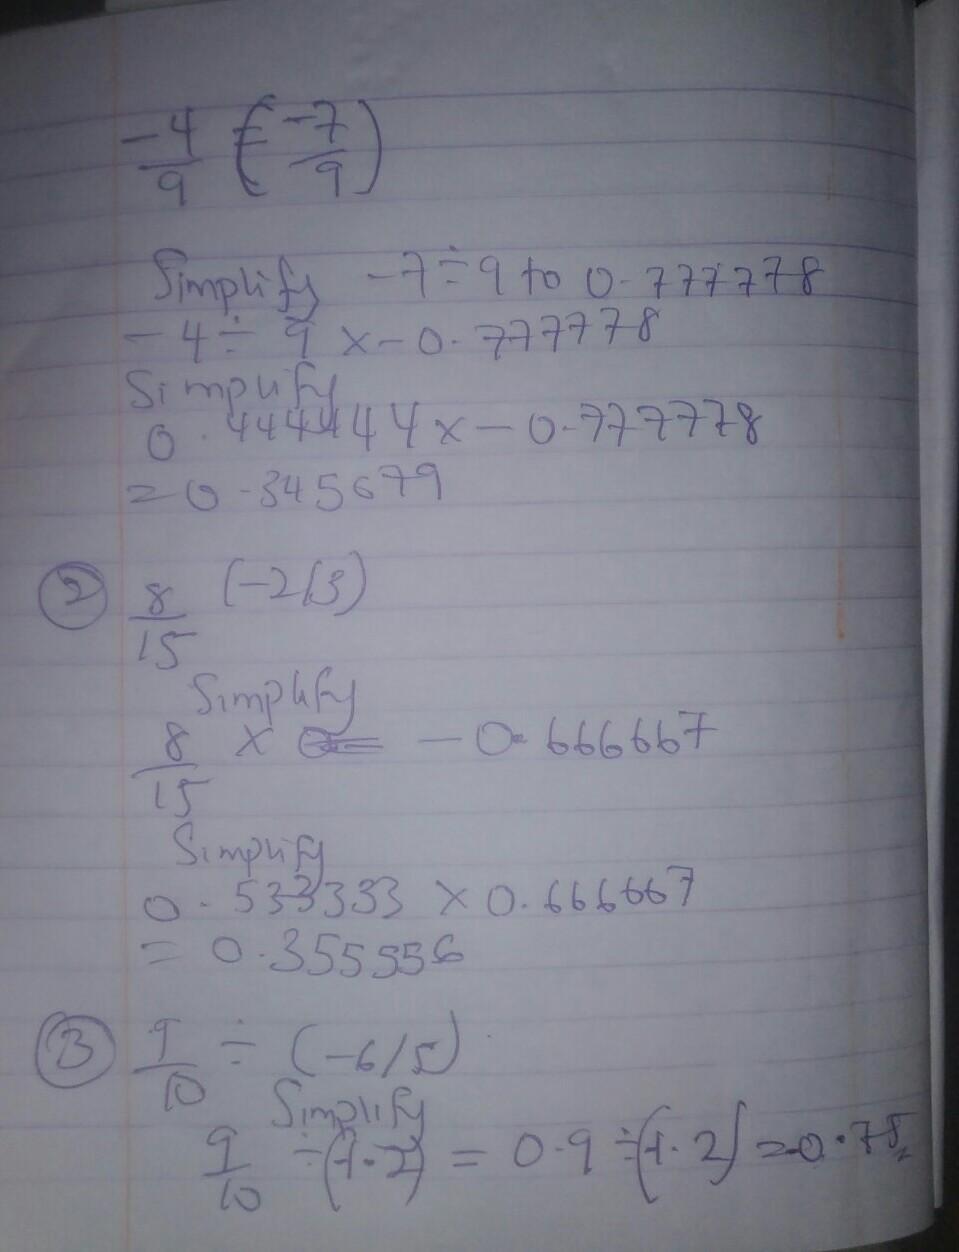 -4/9 (-7/9)
Simplify -7÷9 to 0.777778
-4÷9 x-0.777778
Simplify
0.444444x-0.777778
=0.345679
② 8/15 (-2/3)
Simplify
8/15 x -0.666667
Simplify
0.533333 x0.666667
= 0.355556
③ 9/10 ÷ (-6/5)
Simplify
9/10 ÷(-1.2) = 0.9÷(-1.2)=-0.75